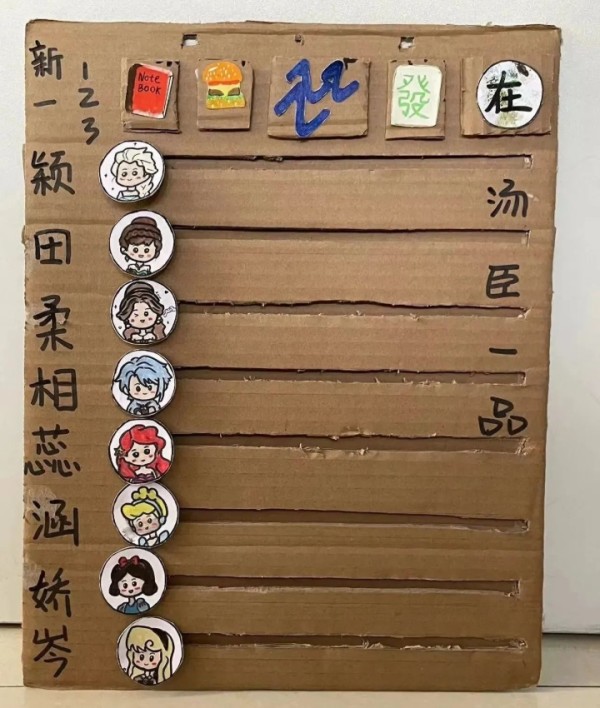 新一
1
2
3
Note
BOOK
發
在
颖
田
柔
相
蕊
涵
娇
岑
汤臣一品